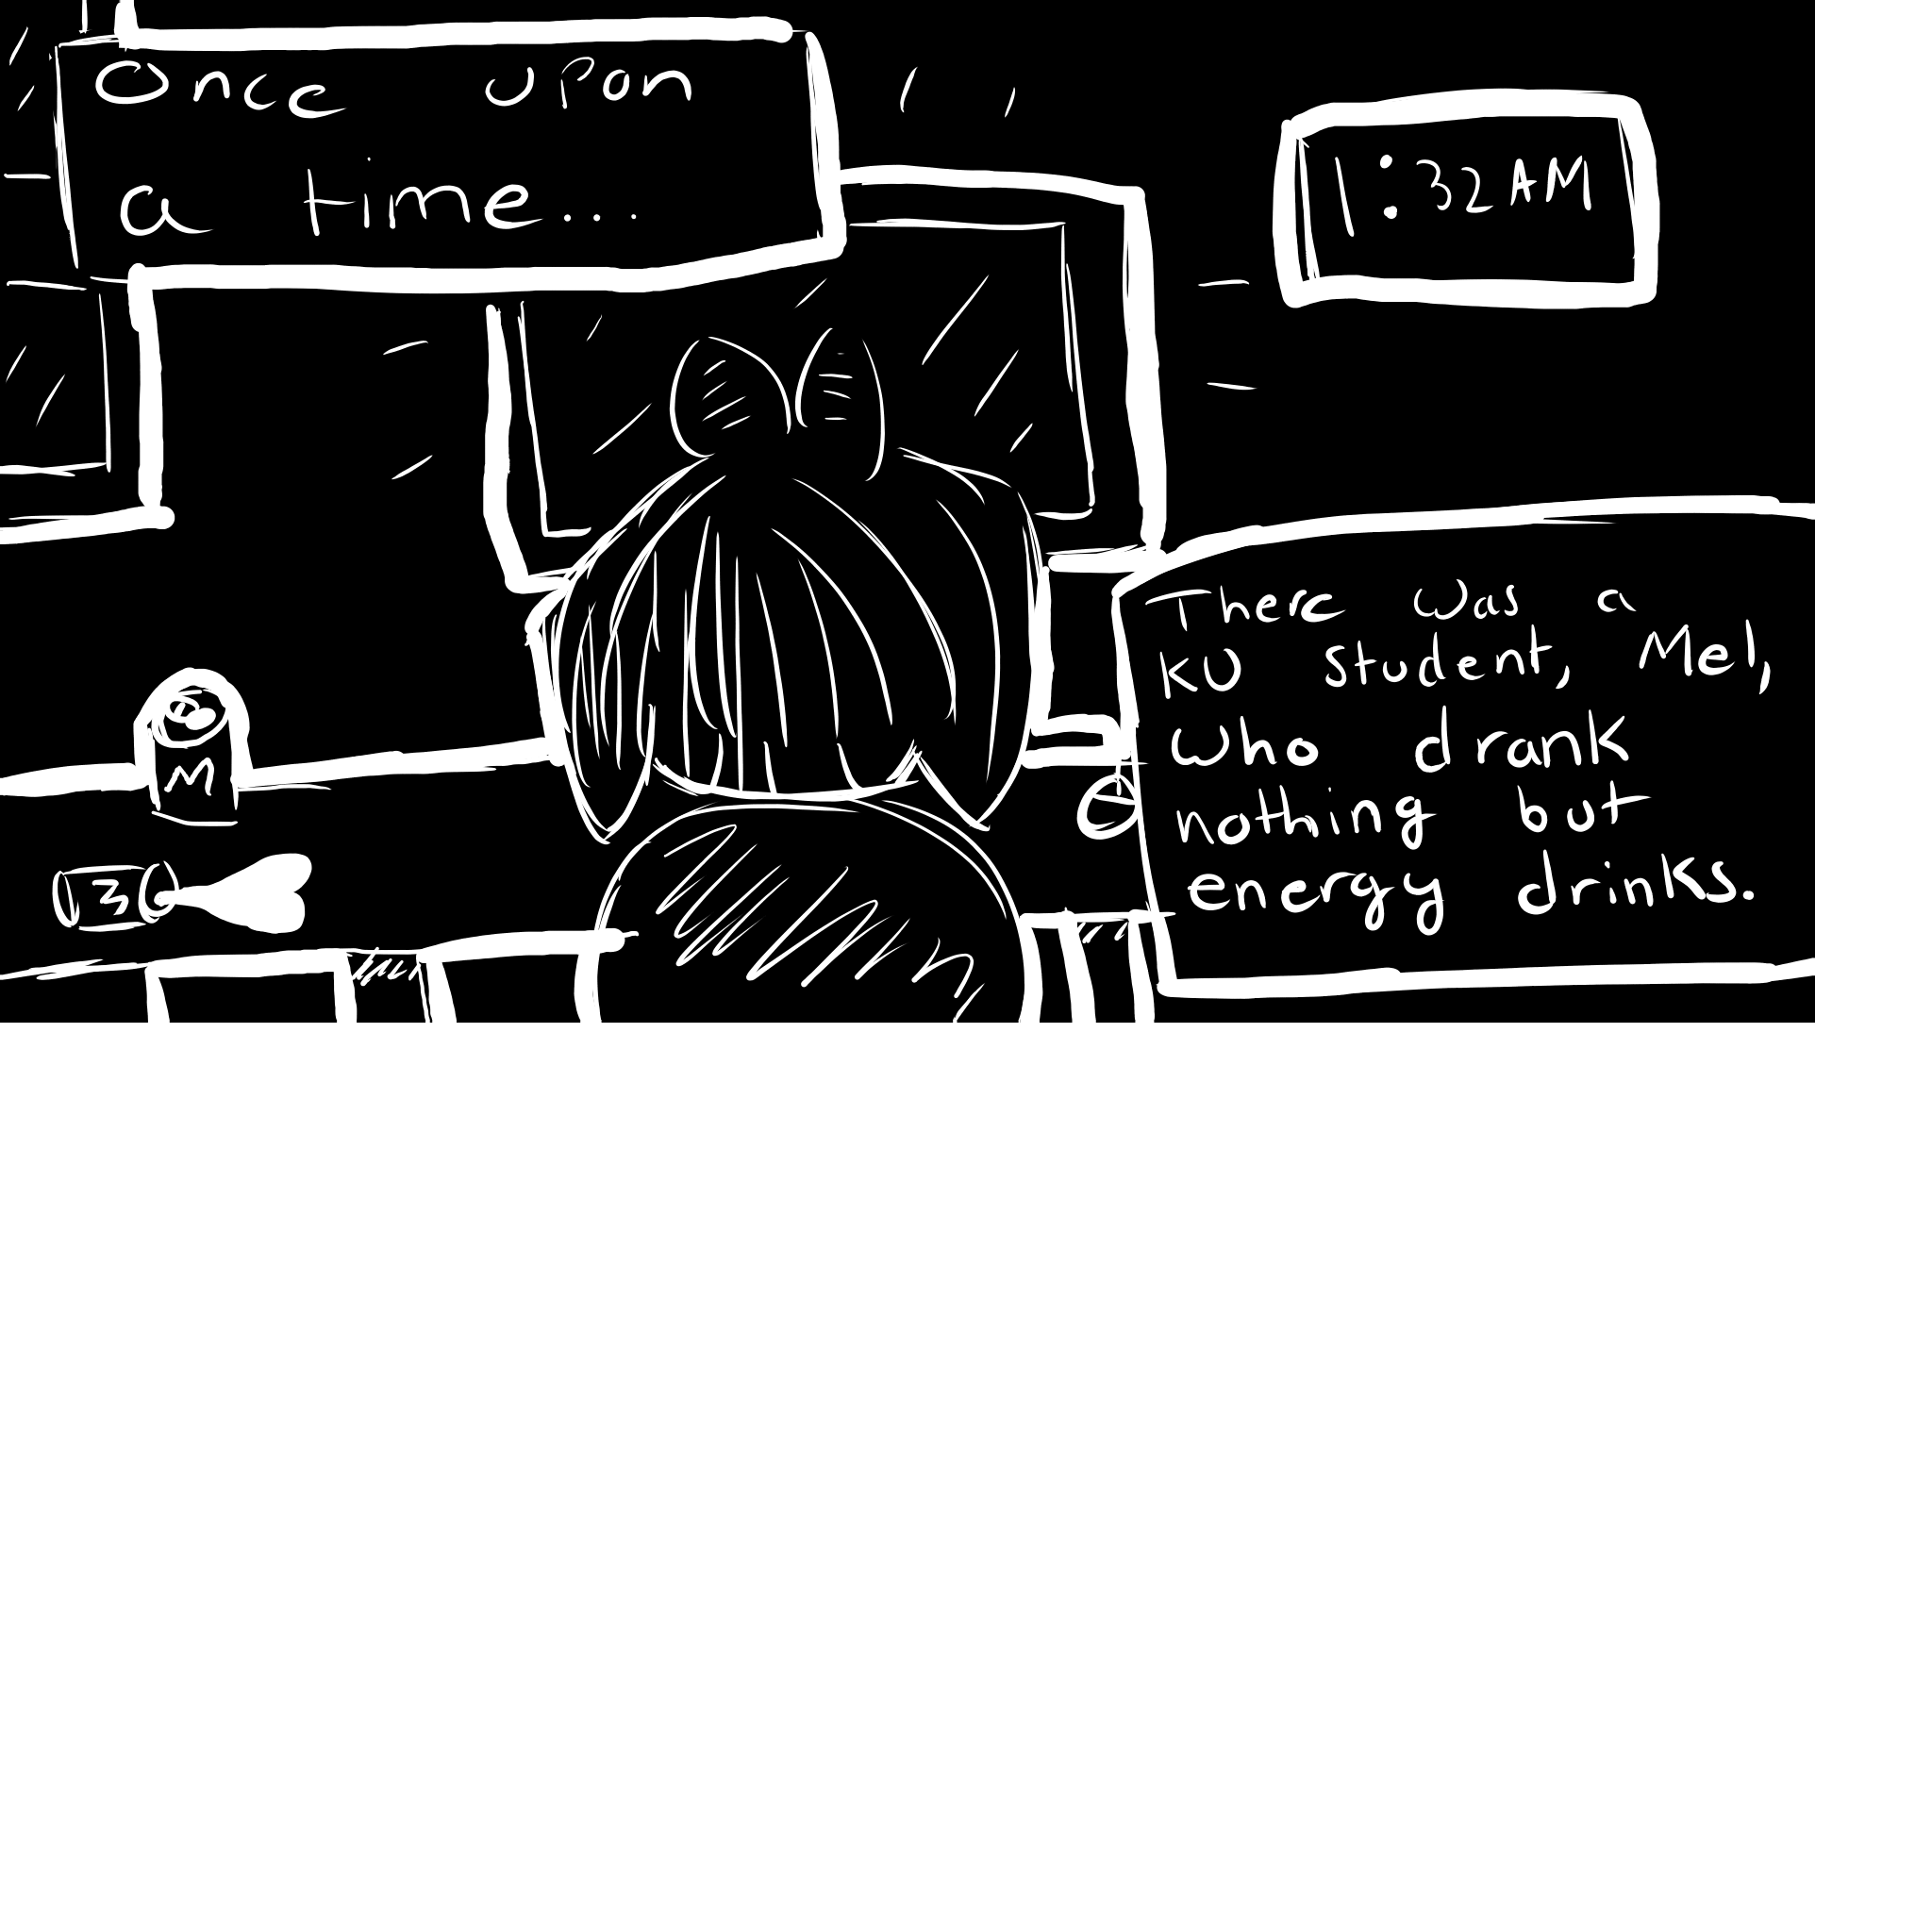 Once upon
a time...
1:32 AM
There was a
KU student, Mel,
who drank
nothing but
energy drinks.
M